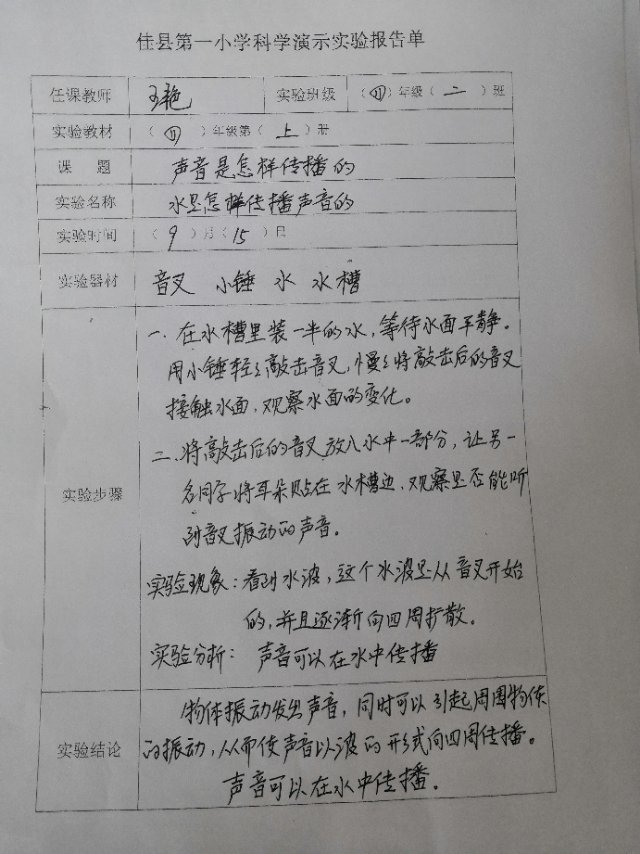 佳县第一小学科学演示实验报告单
任课教师 王艳 实验班级 （四）年级（二）班
实验教材 （四）年级第（上）册
课题 声音是怎样传播的
实验名称 水是怎样传播声音的
实验时间 （9）月（15）日
实验器材 音叉 小锤 水 水槽
一.在水槽里装一半的水，等待水面平静。
用小锤轻轻敲击音叉，慢慢将敲击后的音叉
接触水面，观察水面的变化。
二.将敲击后的音叉放入水中一部分，让另一
实验步骤
名同学将耳朵贴在水槽边，观察是否能听
到音叉振动的声音。
实验现象：看到水波，这个水波是从音叉开始
的，并且逐渐向四周扩散。
实验分析：声音可以在水中传播
物体振动发出声音，同时可以引起周围物体
实验结论 的振动，从而使声音以波的形式向四周传播。
声音可以在水中传播。